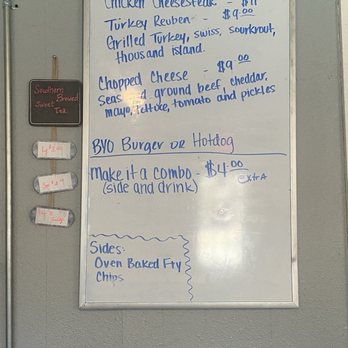 Chicken Cheesesteak - $11
Turkey Reuben - $9.00
Grilled Turkey, swiss, sourkrout,
thousand island.
Chopped Cheese - $9.00
Seasoned ground beef, cheddar,
mayo, lettuce, tomato and pickles
BYO Burger or Hotdog
Make it a combo - $4.00
(side and drink) extra
Sides:
Oven Baked Fry
Chips
Southern
Brewed
Sweet
Tea